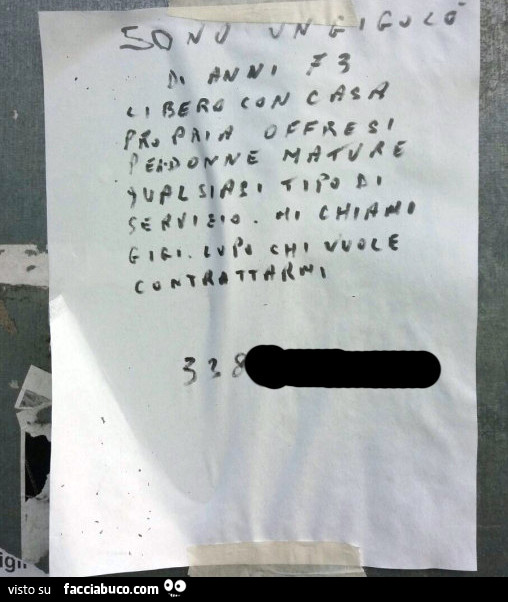 SONO UN GIGOLO'
DI ANNI 73
LIBERO CON CASA
PROPRIA OFFRESI
PER DONNE MATURE
QUALSIASI TIPO DI
SERVIZIO. MI CHIAMI
GIGI. LUPO CHI VUOLE
CONTRATTARMI
338
igli
visto su facciabuco.com